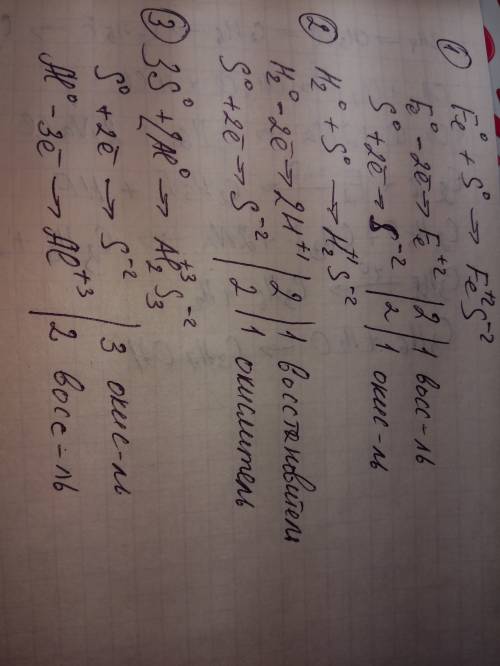 ① Fe⁰ + S⁰ → Fe⁺²S⁻²
Fe⁰ - 2ē → Fe⁺² | 2 | 1 восс-ль
S⁰ + 2ē → S⁻² | 2 | 1 окис-ль
② H₂⁰ + S⁰ → H₂⁺¹S⁻²
H₂⁰ - 2ē → 2H⁺¹ | 2 | 1 восстановитель
S⁰ + 2ē → S⁻² | 2 | 1 окислитель
③ 3S⁰ + 2Al⁰ → Al₂⁺³S₃⁻²
S⁰ + 2ē → S⁻² | 3 окис-ль
Al⁰ - 3ē → Al⁺³ | 2 восс-ль